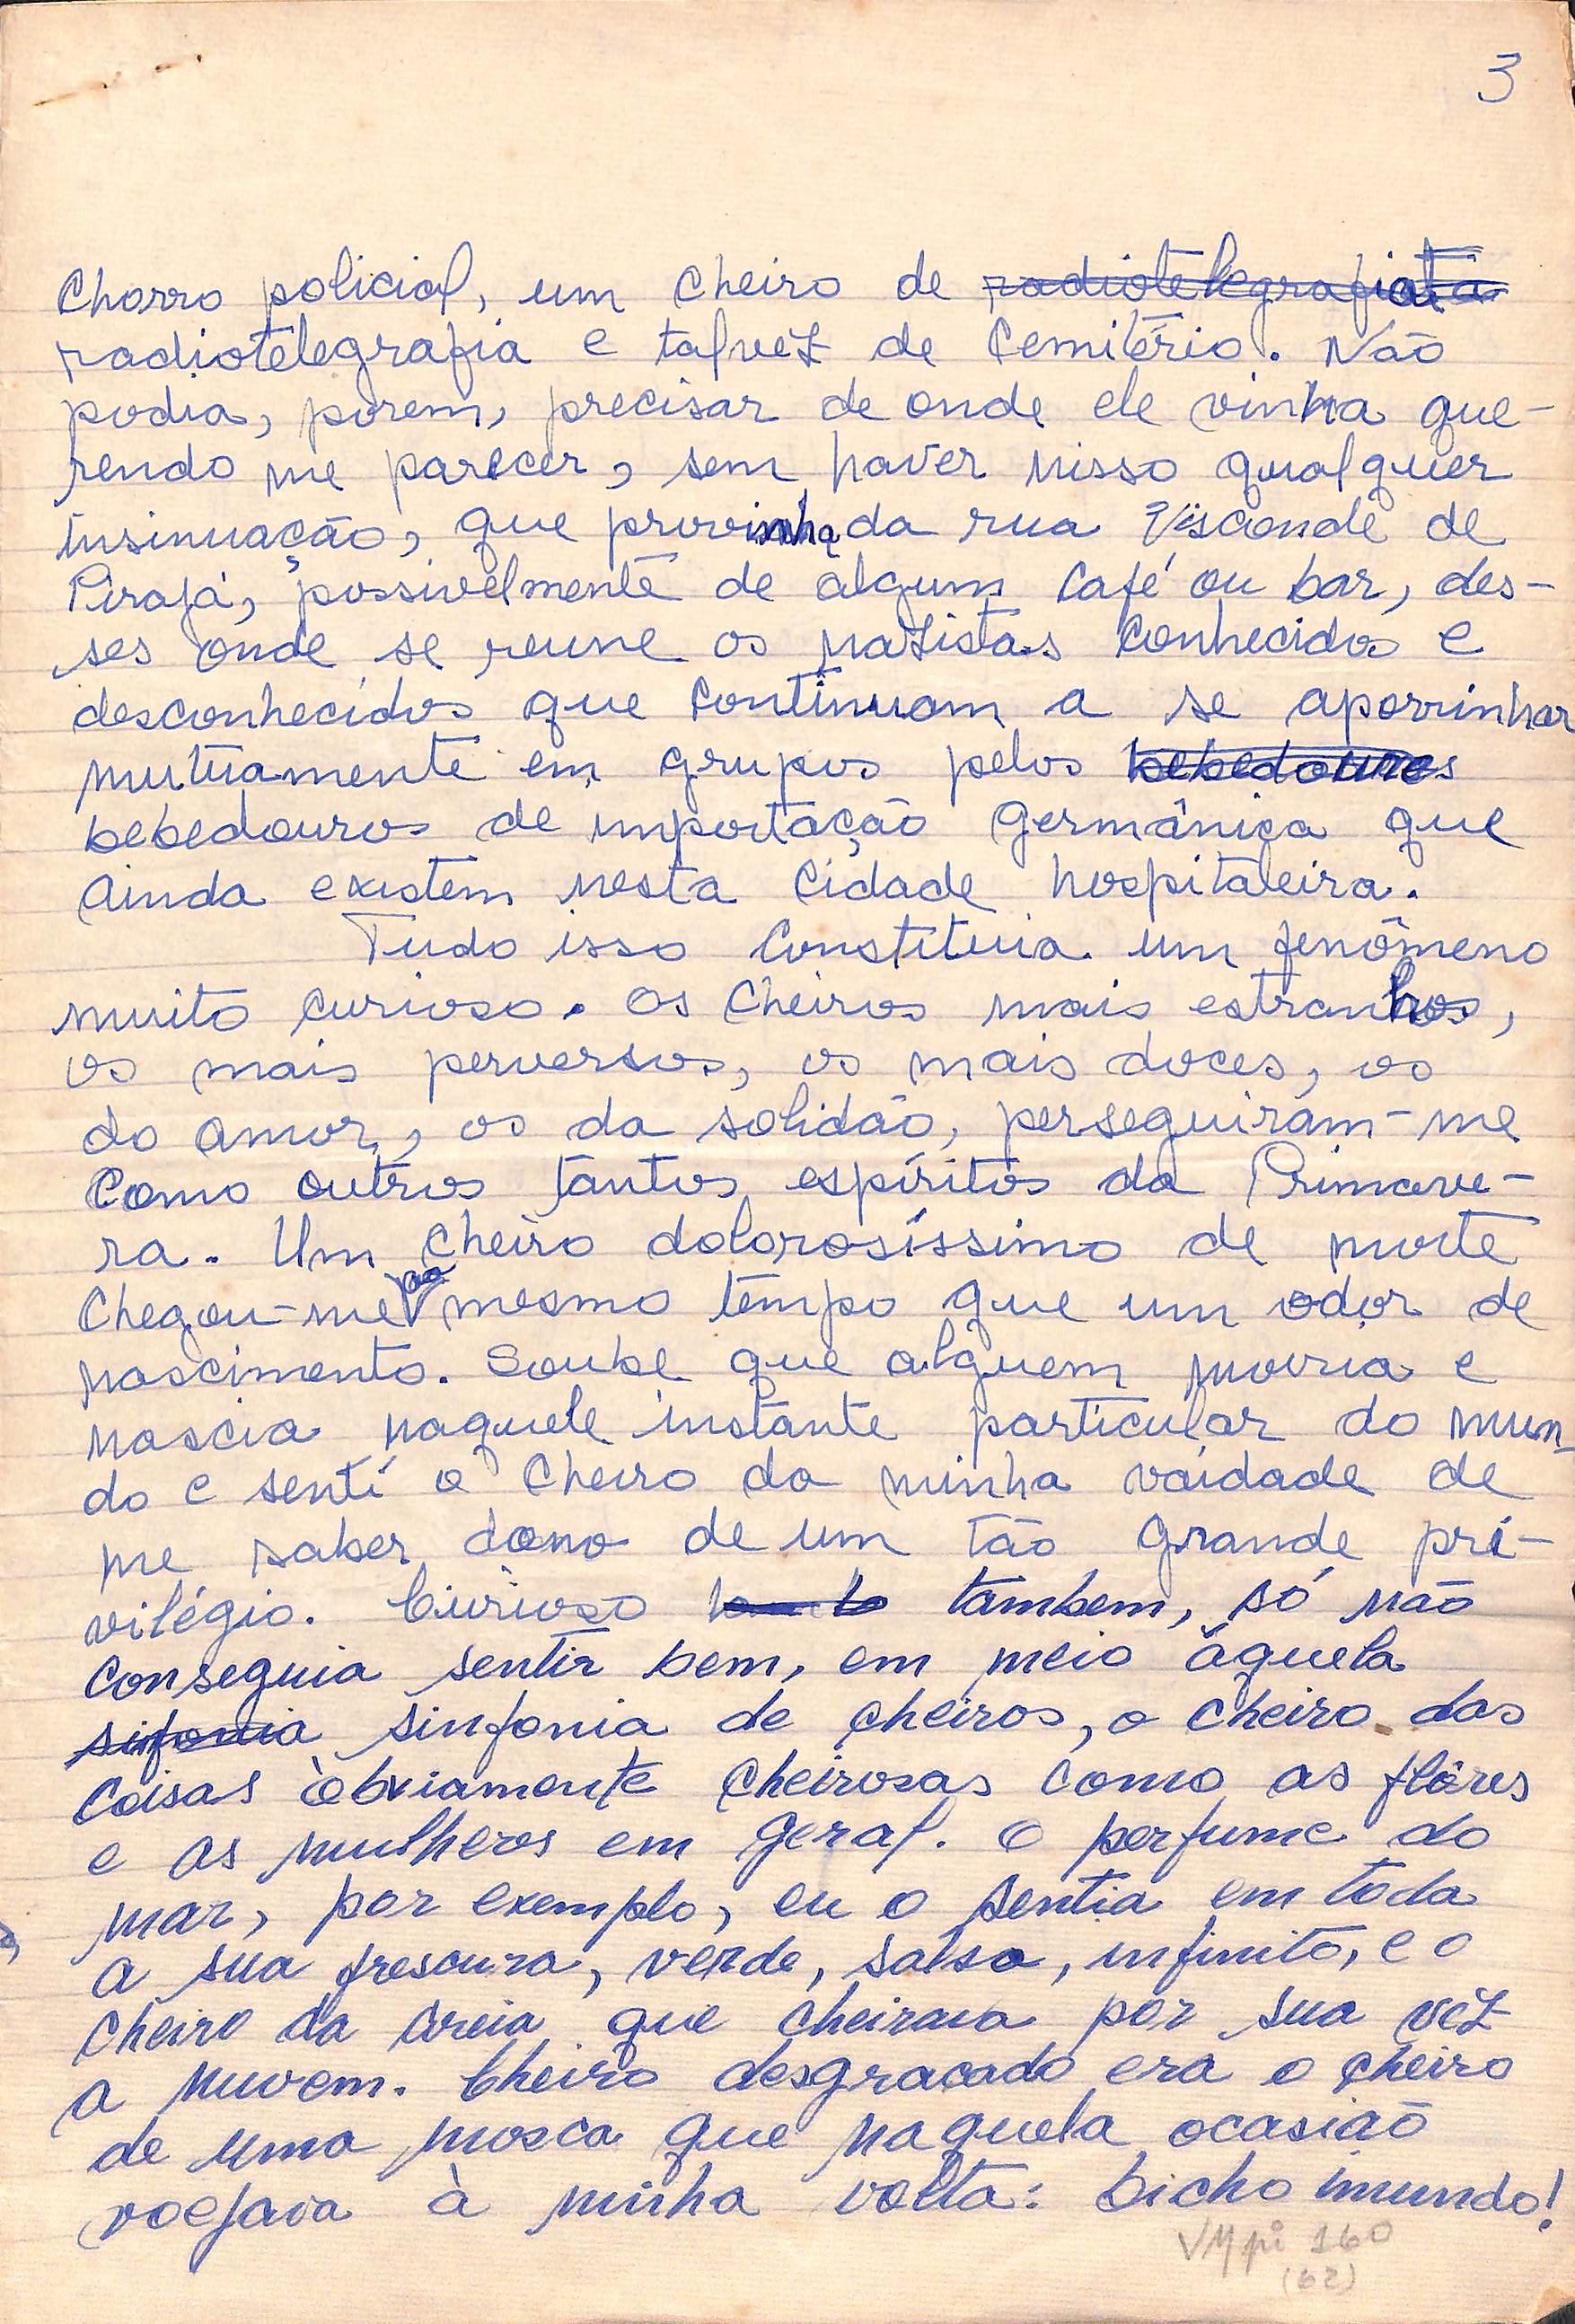 3
chorro policial, um cheiro de radiotelegrafista
radiotelegrafia e talvêz de cemitério. Não
podia, porem, precisar de onde ele vinha que-
rendo me parecer, sem haver nisso qualquer
insinuação, que provinha da rua Visconde de
Pirajá, possivelmente de algum café ou bar, des-
ses onde se reune os nazistas conhecidos e
desconhecidos que continuam a se aporrinhar
mutuamente em grupos pelos bebedouros
bebedouros de importação germânica que
ainda existem nesta cidade hospitaleira.
Tudo isso constituia um fenômeno
muito curioso. Os cheiros mais estranhos,
os mais perversos, os mais doces, os
do amor, os da solidão, perseguiram-me
como outros tantos espíritos da Primave-
ra. Um cheiro dolorosíssimo de morte
chegou-me ao mesmo tempo que um odor de
nascimento. Soube que alguem morria e
nascia naquele instante particular do mun-
do e sentí o cheiro da minha vaidade de
me saber dono de um tão grande pri-
vilégio. Curioso tambem, só não
conseguia sentir bem, em meio àquela
sifonia sinfonia de cheiros, o cheiro das
coisas òbviamente cheirosas como as flôres
e as mulheres em geral. O perfume do
mar, por exemplo, eu o sentia em toda
a sua frescura, verde, salso, infinito, e o
cheiro da areia que cheirava por sua vêz
a nuvem. Cheiro desgraçado era o cheiro
de uma mosca que naquela ocasião
voejava à minha volta: bicho imundo!
VMpi 160
(62)